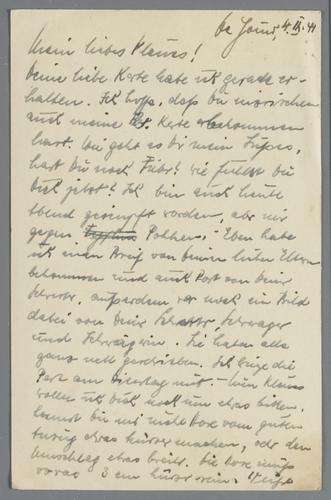 4. IX. 41
Mein liebes Klaus!
Deine liebe Karte habe ich gerade er-
halten. Ich hoffe, daß Du inzwischen
auch meine Karte bekommen
hast. Wie geht es Dir mein Süßes,
hast Du noch Fieber? Wie fühlst Du
Dich jetzt? Ich bin auch heute
Abend geimpft worden, aber nur
gegen Pocken. Eben habe
ich einen Brief von Deinen lieben Eltern
bekommen und auch Post von Deiner
Schwester, außerdem war noch ein Bild
dabei von Deiner Schwester, Schwager
und Schwägerin. Sie haben alle
ganz nett geschrieben. Ich bringe die
Post am Dienstag mit. Mein Klaus
wollte ich Dich noch um etwas bitten,
kannst Du mir nicht vom guten
Anzug etwas kürzer machen, oder den
Umschlag etwas breiter. Die muß
3 cm kürzer sein.